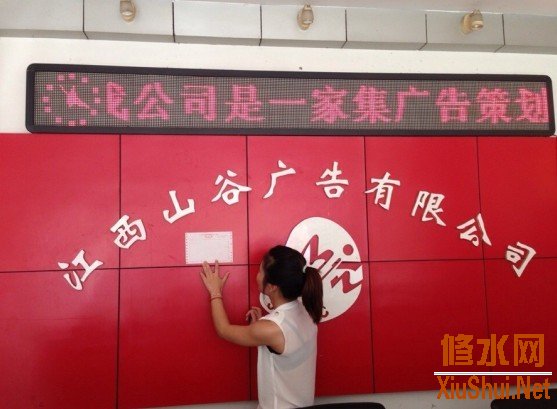 我公司是一家集广告策划
江西山谷广告有限公司
修水网
XiuShui.Net